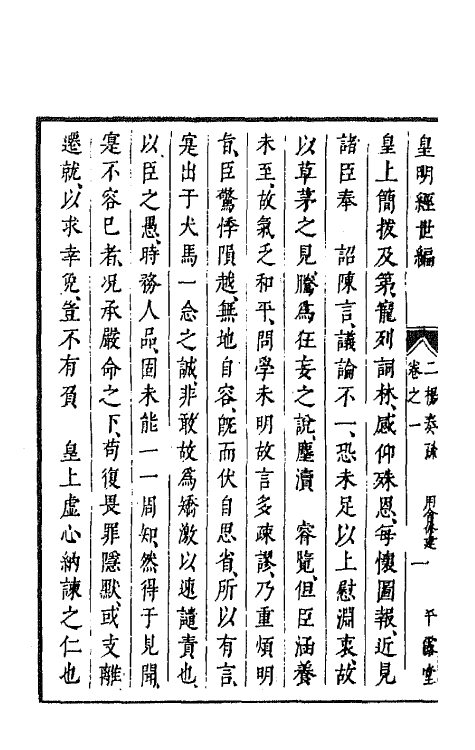 皇明經世編
二楊奏疏
卷之一
一
平露堂
皇上簡拔及第、寵列詞林、感仰殊恩、每懷圖報、近見
諸臣奉　詔陳言、議論不一、恐未足以上慰淵衷、故
以草茅之見、騰爲狂妄之說、塵瀆　睿覽、但臣涵養
未至、故氣乏和平、問學未明、故言多疎謬、乃重煩明
旨、臣驚悸隕越、無地自容、旣而伏自思省、所以有言、
寔出于犬馬一念之誠、非敢故爲矯激以速譴責也、
以臣之愚、時務人品、固未能一一周知、然得于見聞、
寔不容已者、况承嚴命之下、苟復畏罪隱默、或支離
遷就、以求幸免、豈不有負　皇上虛心納諫之仁也